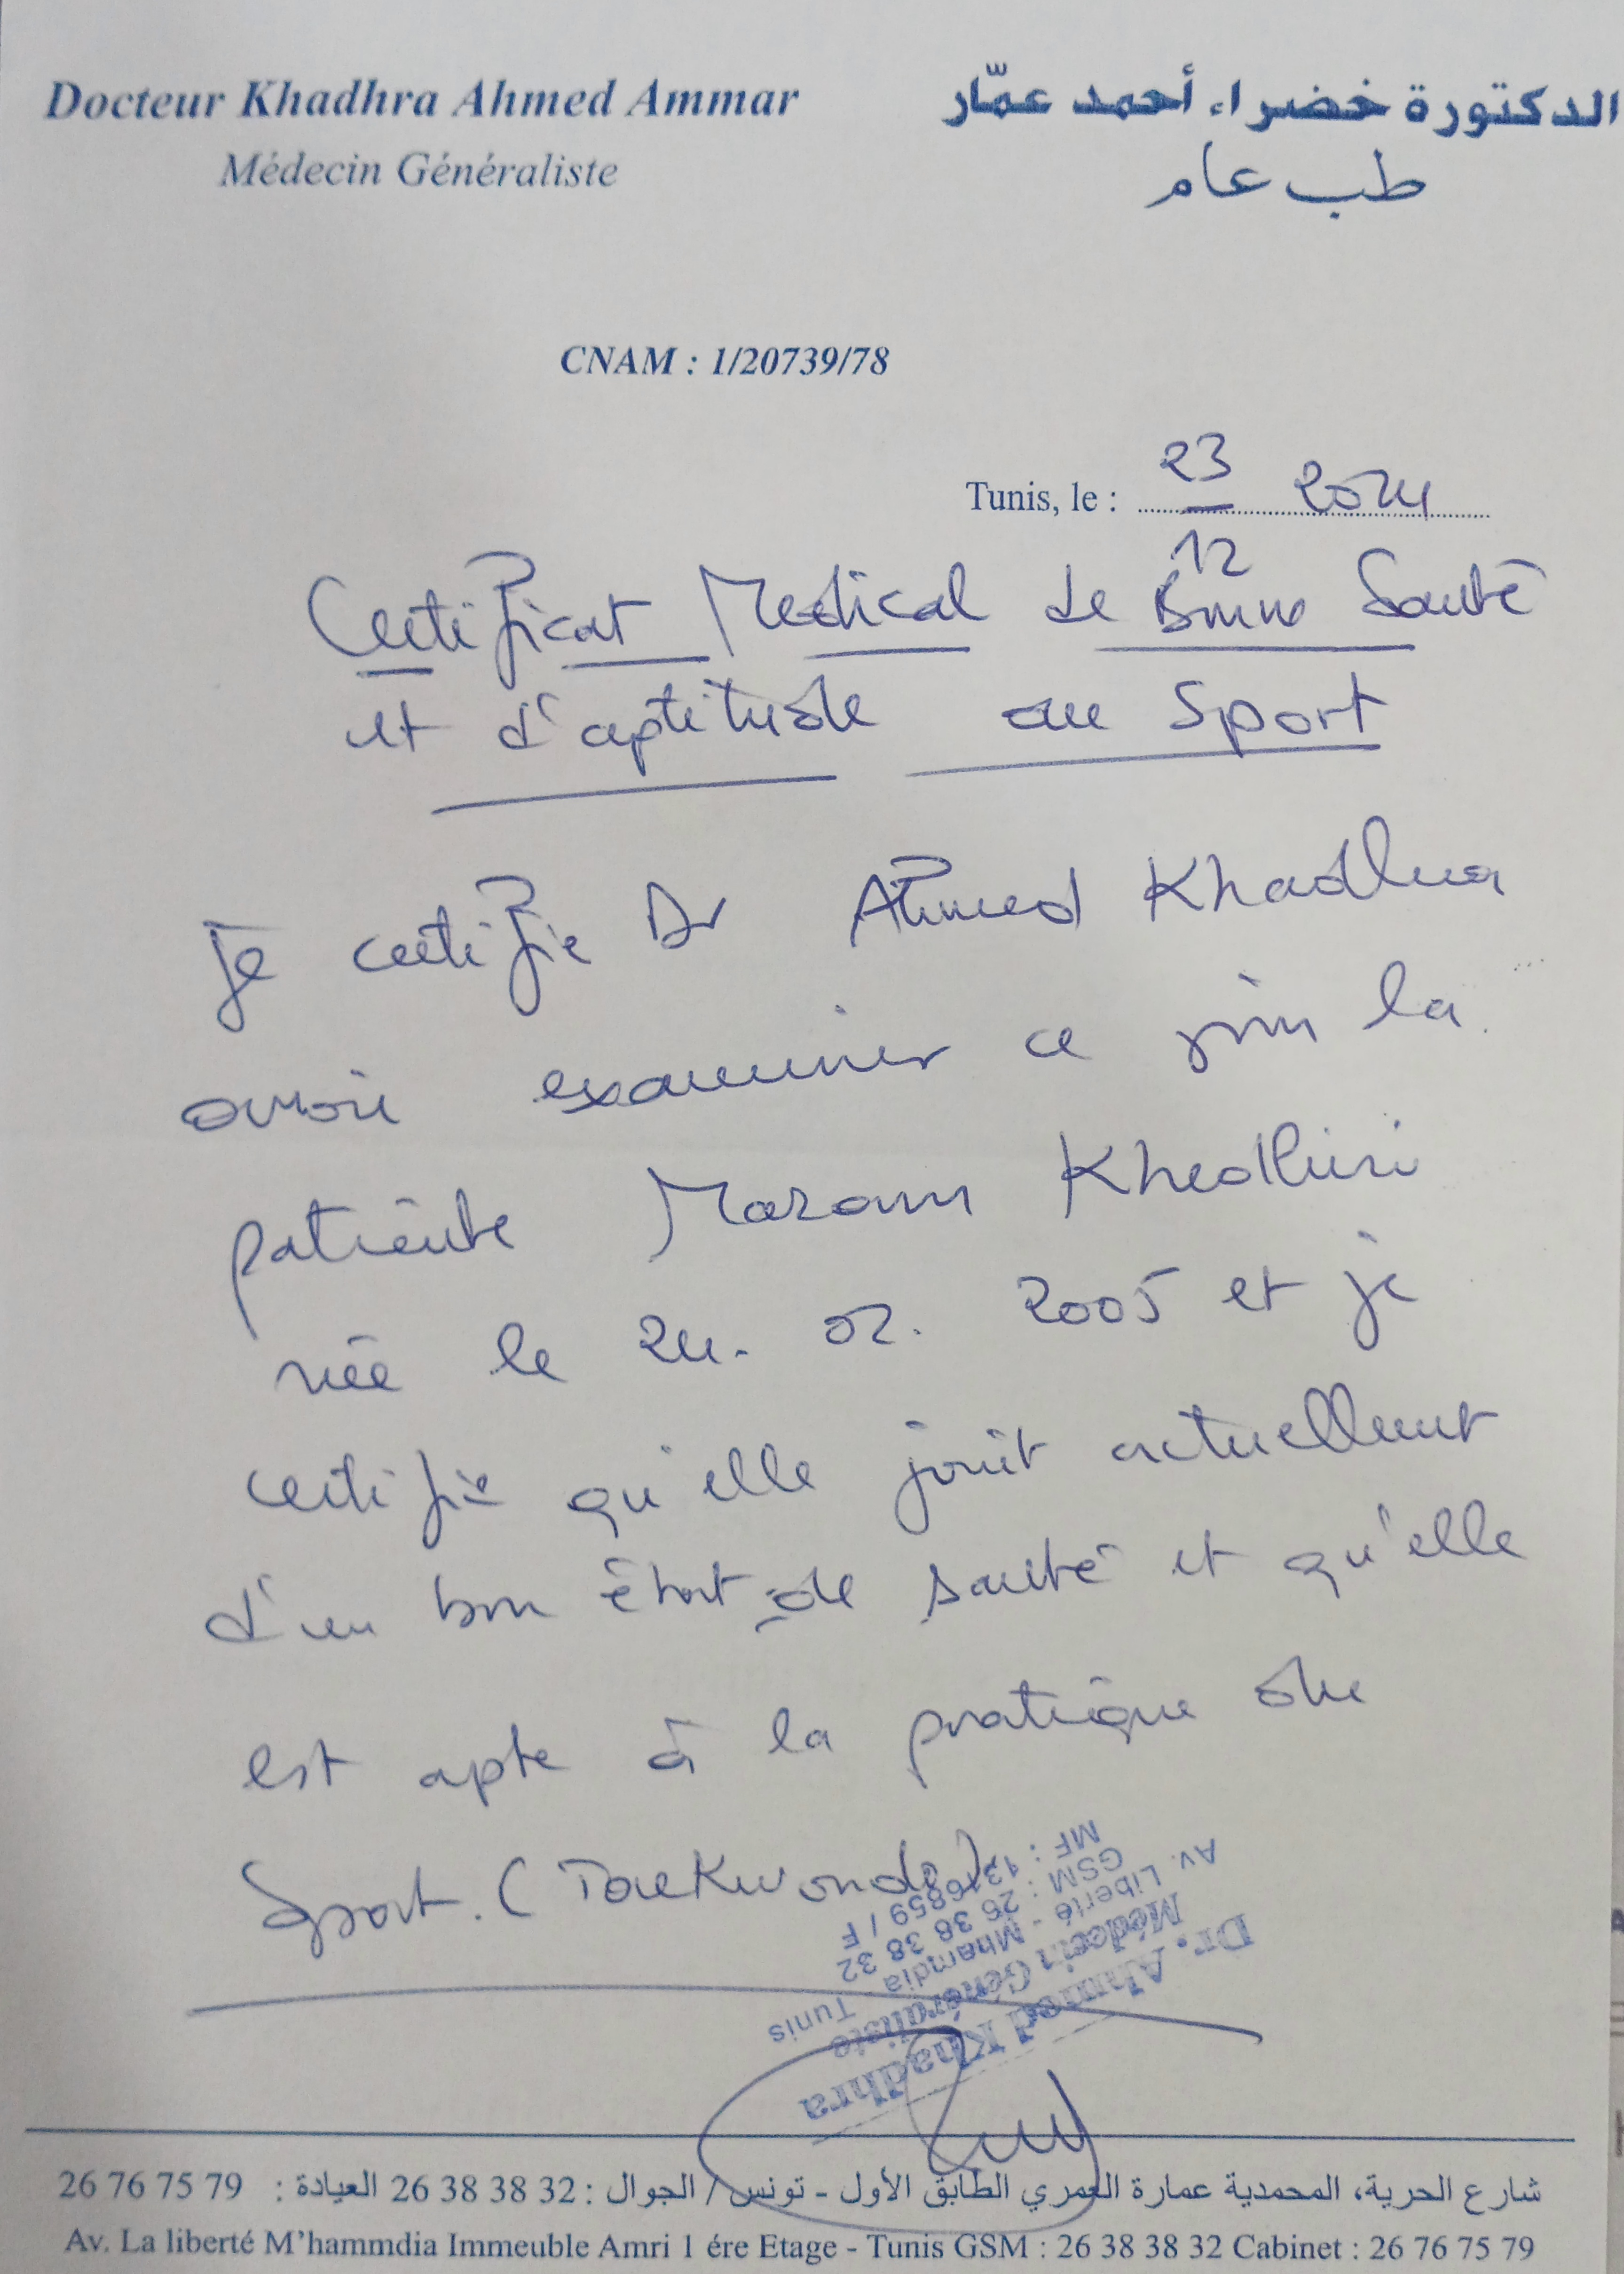 Docteur Khadhra Ahmed Ammar
Médecin Généraliste
الدكتورة خضراء أحمد عمّار
طب عام
CNAM : 1/20739/78
Tunis, le : 23/12 2024
Certificat Medical de Bonne Santé
et d'aptitude au Sport
Je certifie Dr Ahmed Khadhra
avoir examiner ce jour la
patiente Maram Khedhiri
née le 24. 02. 2005 et je
certifie qu'elle jouit actuellement
d'un bon état de santé et qu'elle
est apte à la pratique du
Sport. (Taekwondo)
Dr. Ahmed Khadhra
Médecin Généraliste
Av. Liberté - Mhamdia Tunis
GSM : 26 38 38 32
شارع الحرية، المحمدية عمارة العمري الطابق الأول - تونس / الجوال : 32 38 38 26 العيادة : 79 75 76 26
Av. La liberté M'hammdia Immeuble Amri 1 ére Etage - Tunis GSM : 26 38 38 32 Cabinet : 26 76 75 79